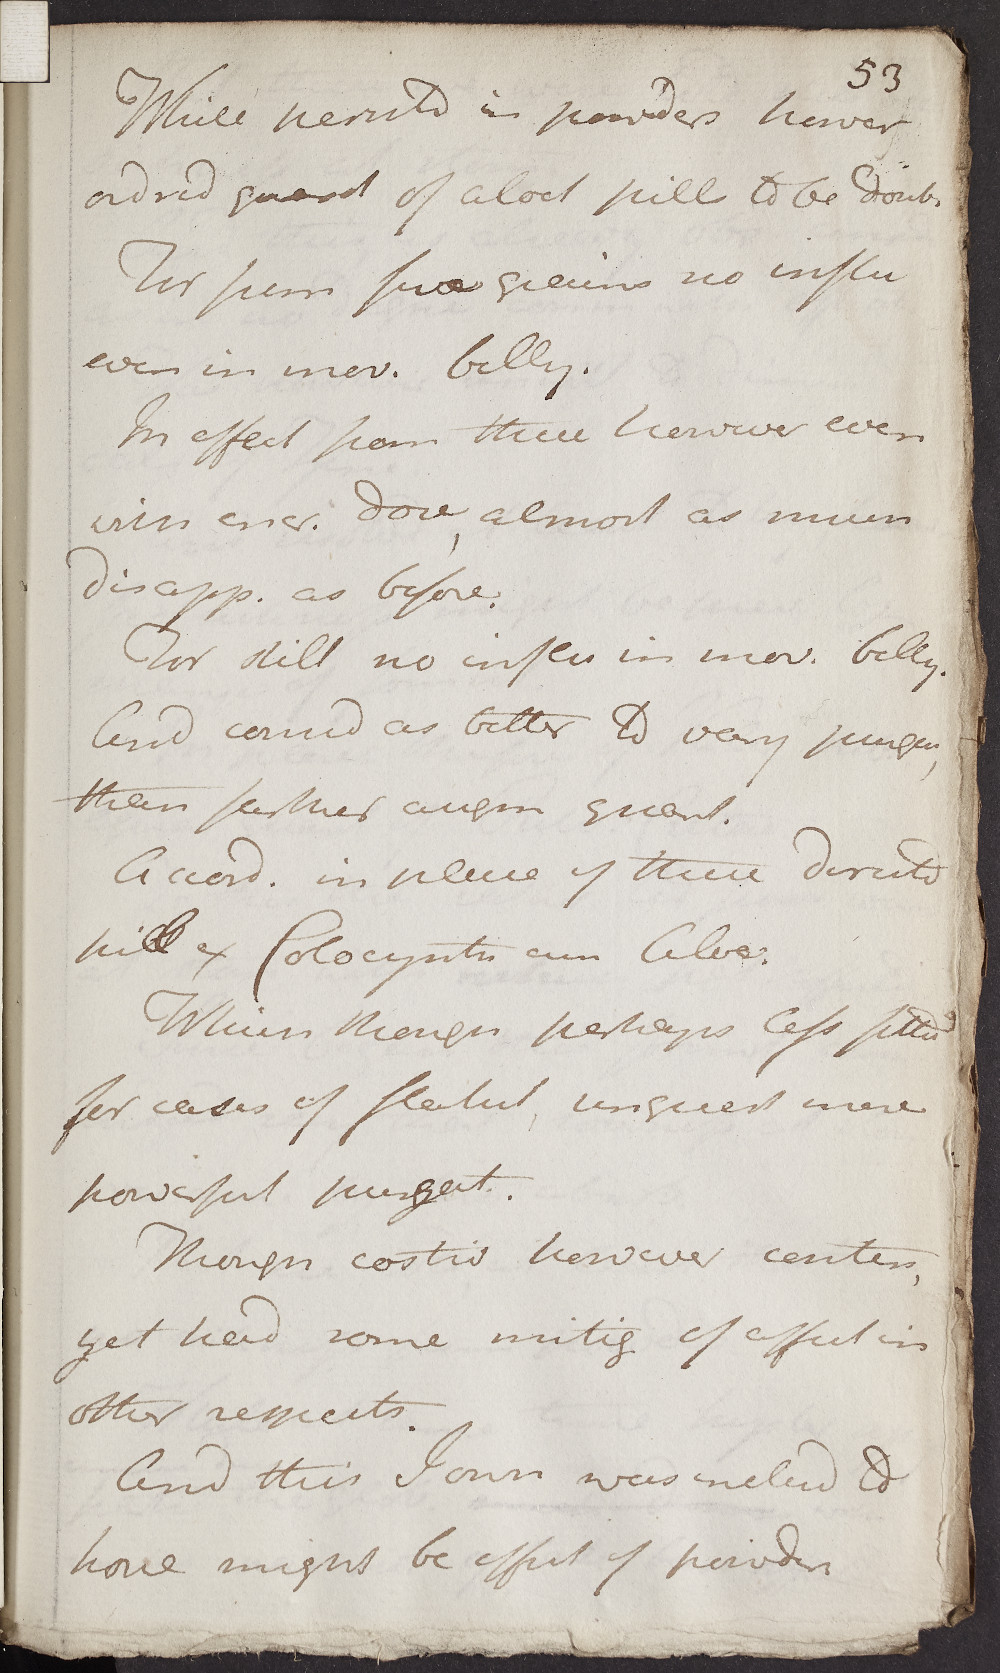 53
While persistd in powders however
ordred quant of aloet pill to be doub.
For from five grains no influ
even in mov. belly.
In effect from these however even
with encr. dose, almost as much
disapp. as before.
For still no influ in mov. belly.
And consid as better to vary purgan,
than further augm quant.
Accord. in place of these directd
pill ex Colocynth cum Aloe.
Which though perhaps less fitted
for cases of flatul, unquest more
powerful purgat.
Though costiv however contin,
yet had some mitig of affect in
other respects.
And this I own was inclind to
hope might be effect of powders